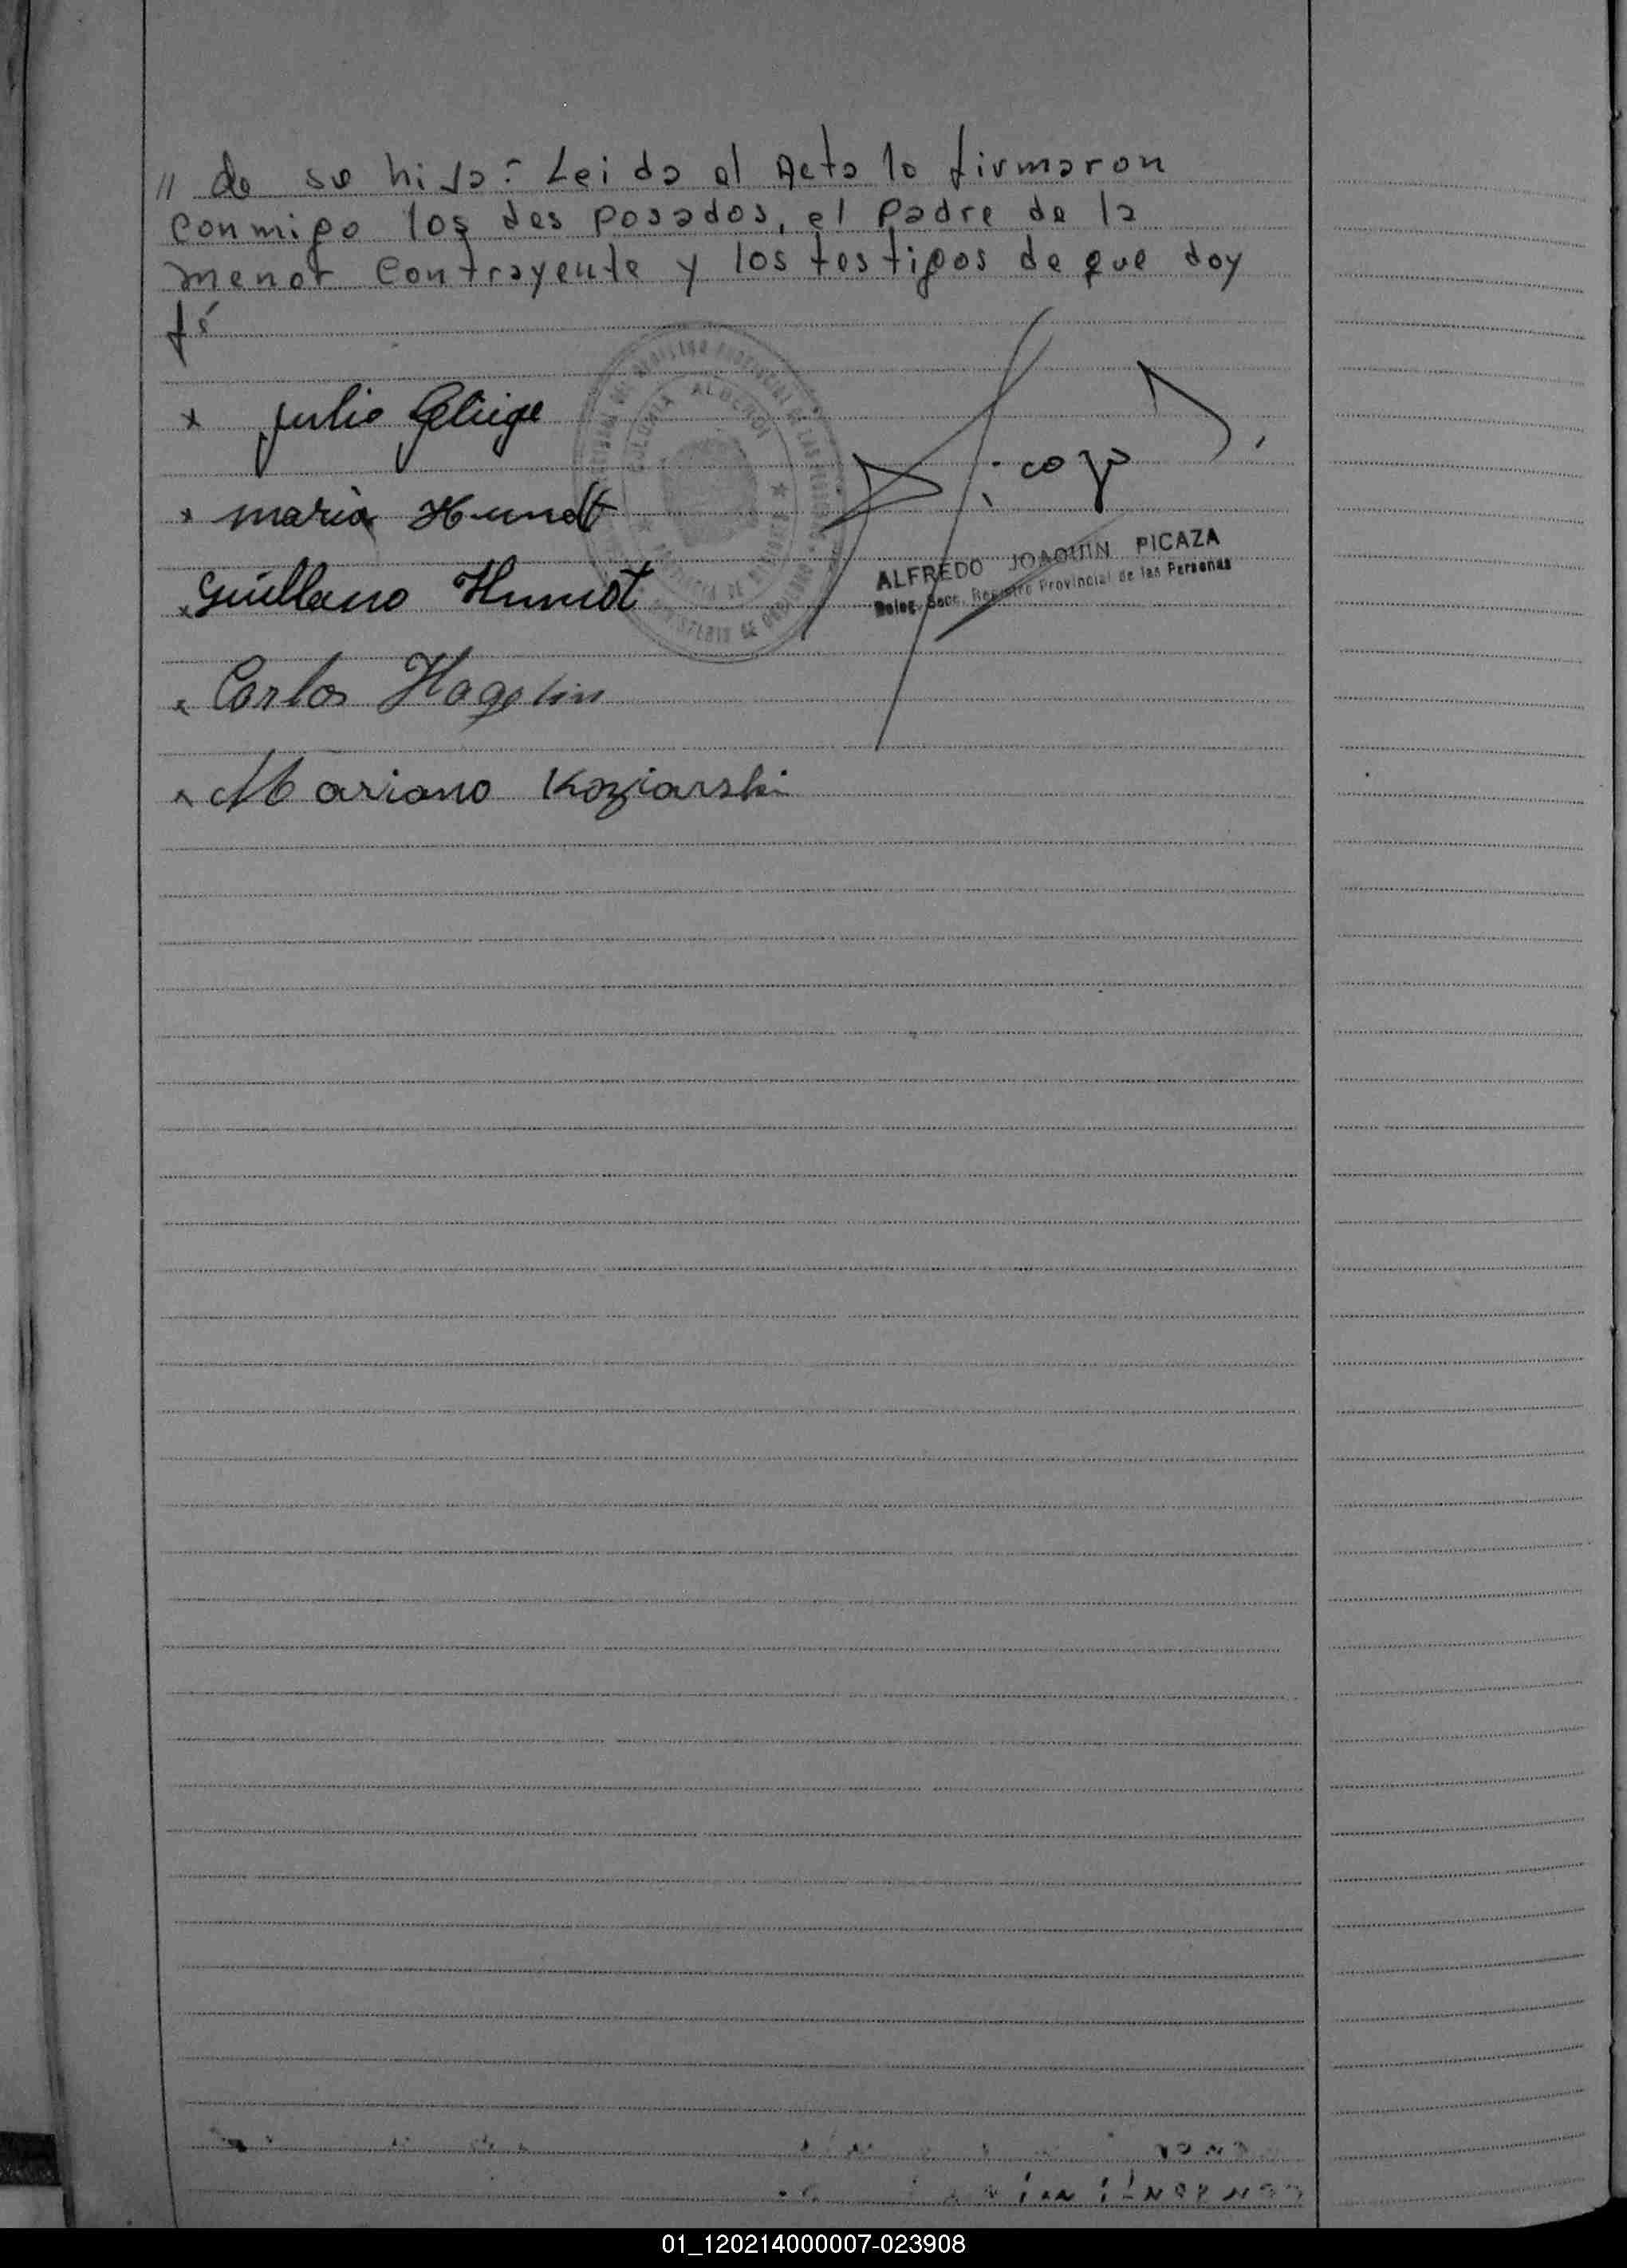 // de su hija = Leida el Acta lo firmaron
conmigo los desposados, el padre de la
menor contrayente y los testigos de que doy
fé
x Julio
x maria Hundt
x Guillermo Hundt
x Carlos Hagelin
x Mariano Koziarski
COLONIA ALBERDI
ALFREDO JOAQUIN PICAZA
Deleg. Secc. Registro Provincial de las Personas
01_120214000007-023908